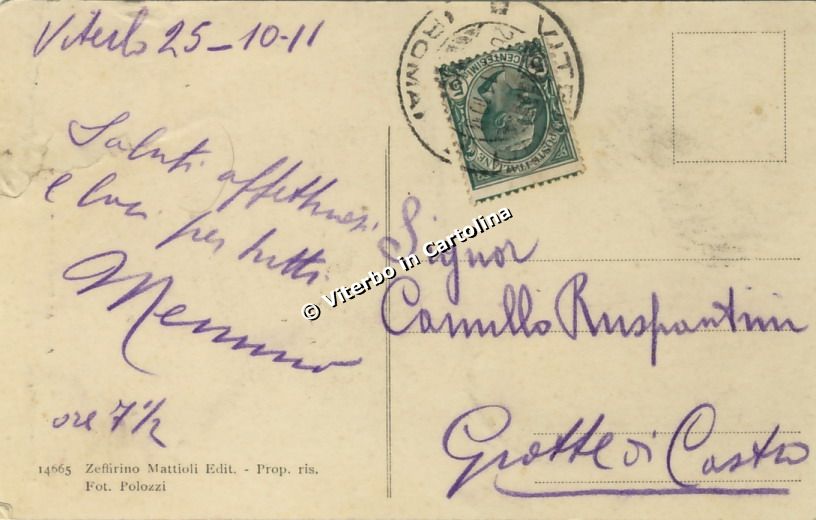 Viterbo 25-10-11
Saluti affettuosi
e baci per tutti
ore 7 1/2
14665 Zeffirino Mattioli Edit. - Prop. ris.
Fot. Polozzi
VITE
(ROMA)
CENTESIMI
POSTE ITALIANE
© Viterbo in Cartolina
Signor
Camillo Ruspantini
Grotte di Castro